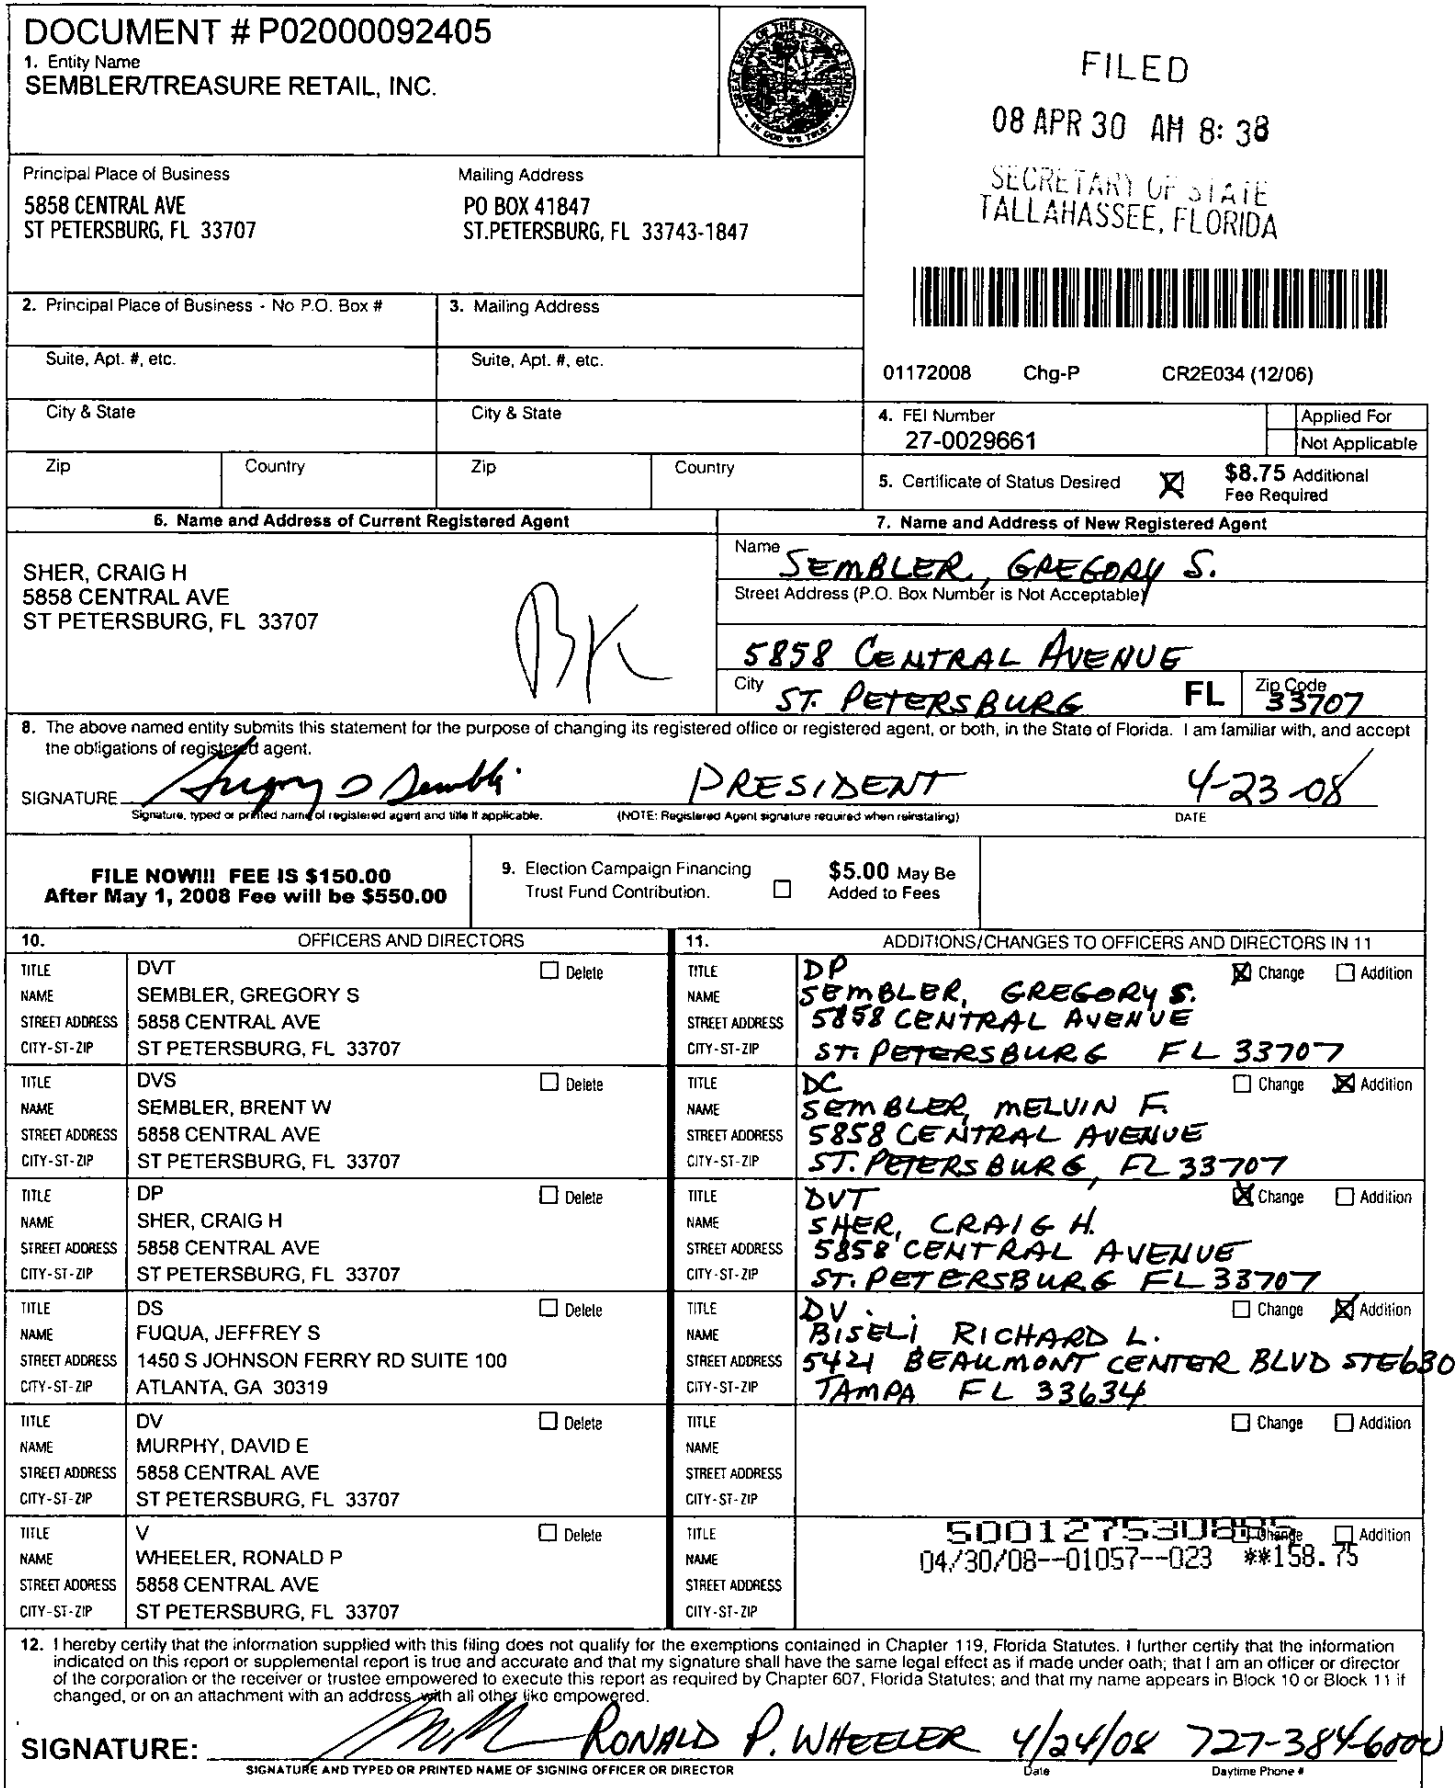 DOCUMENT # P02000092405
1. Entity Name
SEMBLER/TREASURE RETAIL, INC.
GREAT SEAL OF THE STATE OF FLORIDA
IN GOD WE TRUST
FILED
08 APR 30 AM 8: 38
SECRETARY OF STATE
TALLAHASSEE, FLORIDA
Principal Place of Business
5858 CENTRAL AVE
ST PETERSBURG, FL 33707
Mailing Address
PO BOX 41847
ST.PETERSBURG, FL 33743-1847
2. Principal Place of Business - No P.O. Box #
3. Mailing Address
Suite, Apt. #, etc.
Suite, Apt. #, etc.
01172008 Chg-P CR2E034 (12/06)
City & State
City & State
4. FEI Number
27-0029661
Applied For
Not Applicable
Zip
Country
Zip
Country
5. Certificate of Status Desired
$8.75 Additional
Fee Required
6. Name and Address of Current Registered Agent
SHER, CRAIG H
5858 CENTRAL AVE
ST PETERSBURG, FL 33707
BK
7. Name and Address of New Registered Agent
Name SEMBLER, GREGORY S.
Street Address (P.O. Box Number is Not Acceptable)
5858 CENTRAL AVENUE
City ST. PETERSBURG FL Zip Code 33707
8. The above named entity submits this statement for the purpose of changing its registered office or registered agent, or both, in the State of Florida. I am familiar with, and accept
the obligations of registered agent.
SIGNATURE Gregory S Sembler PRESIDENT 4-23-08
Signature, typed or printed name of registered agent and title if applicable. (NOTE: Registered Agent signature required when reinstating) DATE
FILE NOW!!! FEE IS $150.00
After May 1, 2008 Fee will be $550.00
9. Election Campaign Financing
Trust Fund Contribution.
$5.00 May Be
Added to Fees
10. OFFICERS AND DIRECTORS
TITLE DVT Delete
NAME SEMBLER, GREGORY S
STREET ADDRESS 5858 CENTRAL AVE
CITY-ST-ZIP ST PETERSBURG, FL 33707
TITLE DVS Delete
NAME SEMBLER, BRENT W
STREET ADDRESS 5858 CENTRAL AVE
CITY-ST-ZIP ST PETERSBURG, FL 33707
TITLE DP Delete
NAME SHER, CRAIG H
STREET ADDRESS 5858 CENTRAL AVE
CITY-ST-ZIP ST PETERSBURG, FL 33707
TITLE DS Delete
NAME FUQUA, JEFFREY S
STREET ADDRESS 1450 S JOHNSON FERRY RD SUITE 100
CITY-ST-ZIP ATLANTA, GA 30319
TITLE DV Delete
NAME MURPHY, DAVID E
STREET ADDRESS 5858 CENTRAL AVE
CITY-ST-ZIP ST PETERSBURG, FL 33707
TITLE V Delete
NAME WHEELER, RONALD P
STREET ADDRESS 5858 CENTRAL AVE
CITY-ST-ZIP ST PETERSBURG, FL 33707
11. ADDITIONS/CHANGES TO OFFICERS AND DIRECTORS IN 11
TITLE DP Change Addition
NAME SEMBLER, GREGORY S.
STREET ADDRESS 5858 CENTRAL AVENUE
CITY-ST-ZIP ST. PETERSBURG FL 33707
TITLE DC Change Addition
NAME SEMBLER, MELVIN F.
STREET ADDRESS 5858 CENTRAL AVENUE
CITY-ST-ZIP ST. PETERSBURG, FL 33707
TITLE DVT Change Addition
NAME SHER, CRAIG H.
STREET ADDRESS 5858 CENTRAL AVENUE
CITY-ST-ZIP ST. PETERSBURG FL 33707
TITLE DV Change Addition
NAME BISELI, RICHARD L.
STREET ADDRESS 5421 BEAUMONT CENTER BLVD STE630
CITY-ST-ZIP TAMPA FL 33634
TITLE Change Addition
NAME
STREET ADDRESS
CITY-ST-ZIP
TITLE 500127530885 Change Addition
NAME 04/30/08--01057--023 **158.75
STREET ADDRESS
CITY-ST-ZIP
12. I hereby certify that the information supplied with this filing does not qualify for the exemptions contained in Chapter 119, Florida Statutes. I further certify that the information
indicated on this report or supplemental report is true and accurate and that my signature shall have the same legal effect as if made under oath; that I am an officer or director
of the corporation or the receiver or trustee empowered to execute this report as required by Chapter 607, Florida Statutes; and that my name appears in Block 10 or Block 11 if
changed, or on an attachment with an address, with all other like empowered.
SIGNATURE: RONALD P. WHEELER 4/24/08 727-384-6000
SIGNATURE AND TYPED OR PRINTED NAME OF SIGNING OFFICER OR DIRECTOR Date Daytime Phone #